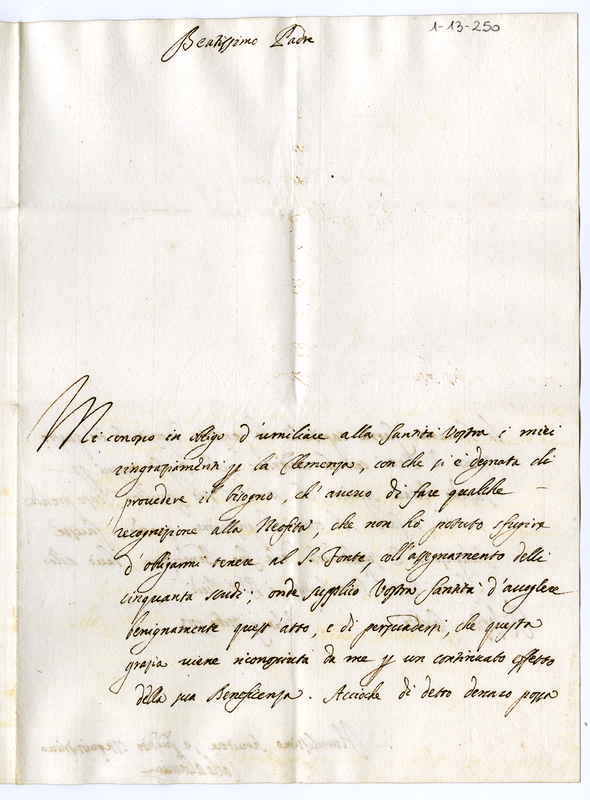 1-13-250
Beatissimo Padre
Mi conosco in obligo d'umiliare alla Santità Vostra i miei
ringraziamenti p la Clemenza, con che si è degnata di
provedere il bisogno, ch' avevo di fare qualche
recognizione alla Neofita, che non hò potuto sfugire
d'obligarmi tenere al S. Fonte, coll'assegnamento delli
cinquanta scudi; onde supplico Vostra Santità d'accogliere
benignamente quest'atto, e di persuadersi, che questa
grazia viene riconosciuta da me p un continuato effetto
della sua Beneficenza. Acciòche di detto denaro possa